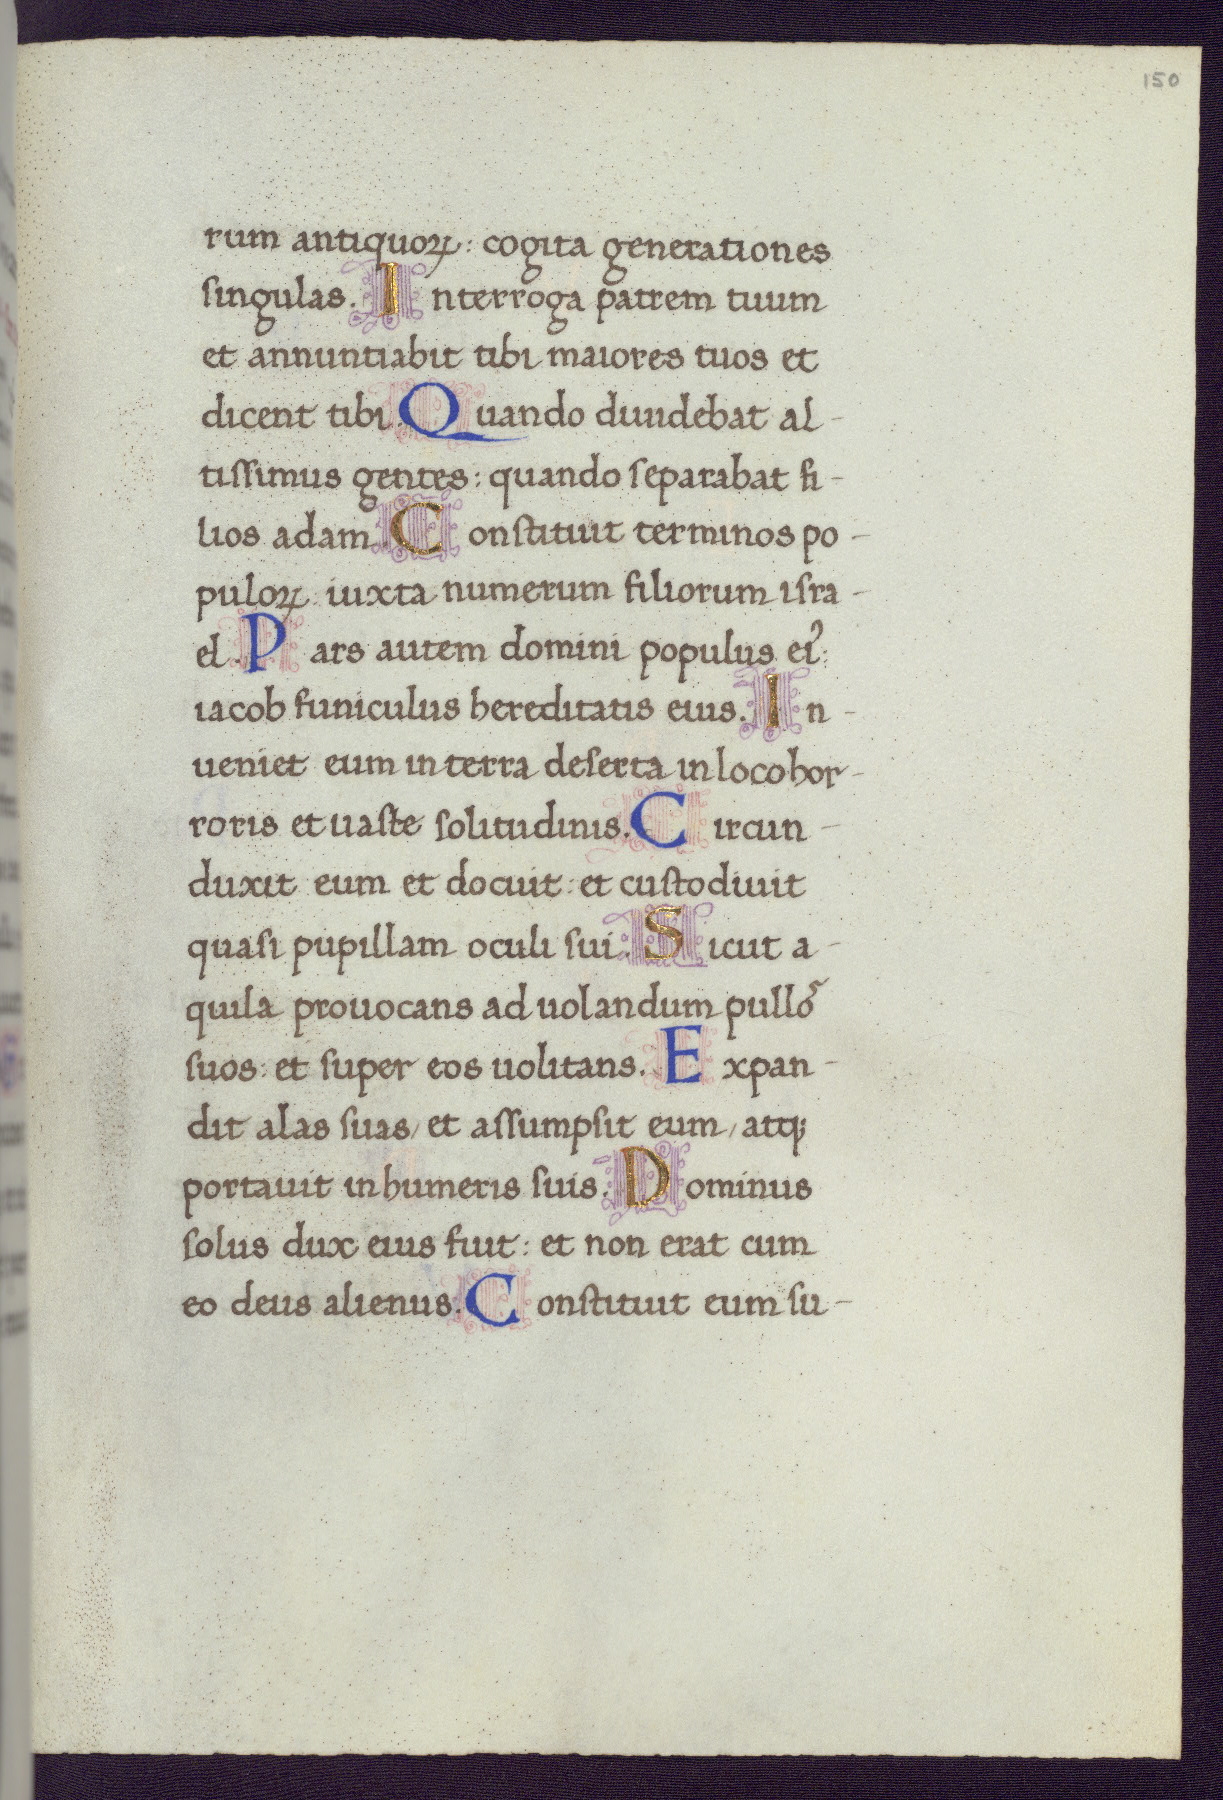 150
rum antiquoꝝ: cogita generationes
singulas. Interroga patrem tuum
et annuntiabit tibi maiores tuos et
dicent tibi. Quando diuidebat al-
tissimus gentes: quando separabat fi-
lios adam. Constituit terminos po-
puloꝝ iuxta numerum filiorum isra-
el. Pars autem domini populus eiꝰ:
iacob funiculus hereditatis eius. In-
ueniet eum in terra deserta in loco hor-
roris et uaste solitudinis. Circun-
duxit eum et docuit: et custodiuit
quasi pupillam oculi sui. Sicut a-
quila prouocans ad uolandum pullõs
suos: et super eos uolitans. Expan-
dit alas suas/ et assumpsit eum/ atqꝫ
portauit in humeris suis. Dominus
solus dux eius fuit: et non erat cum
eo deus alienus. Constituit eum su-